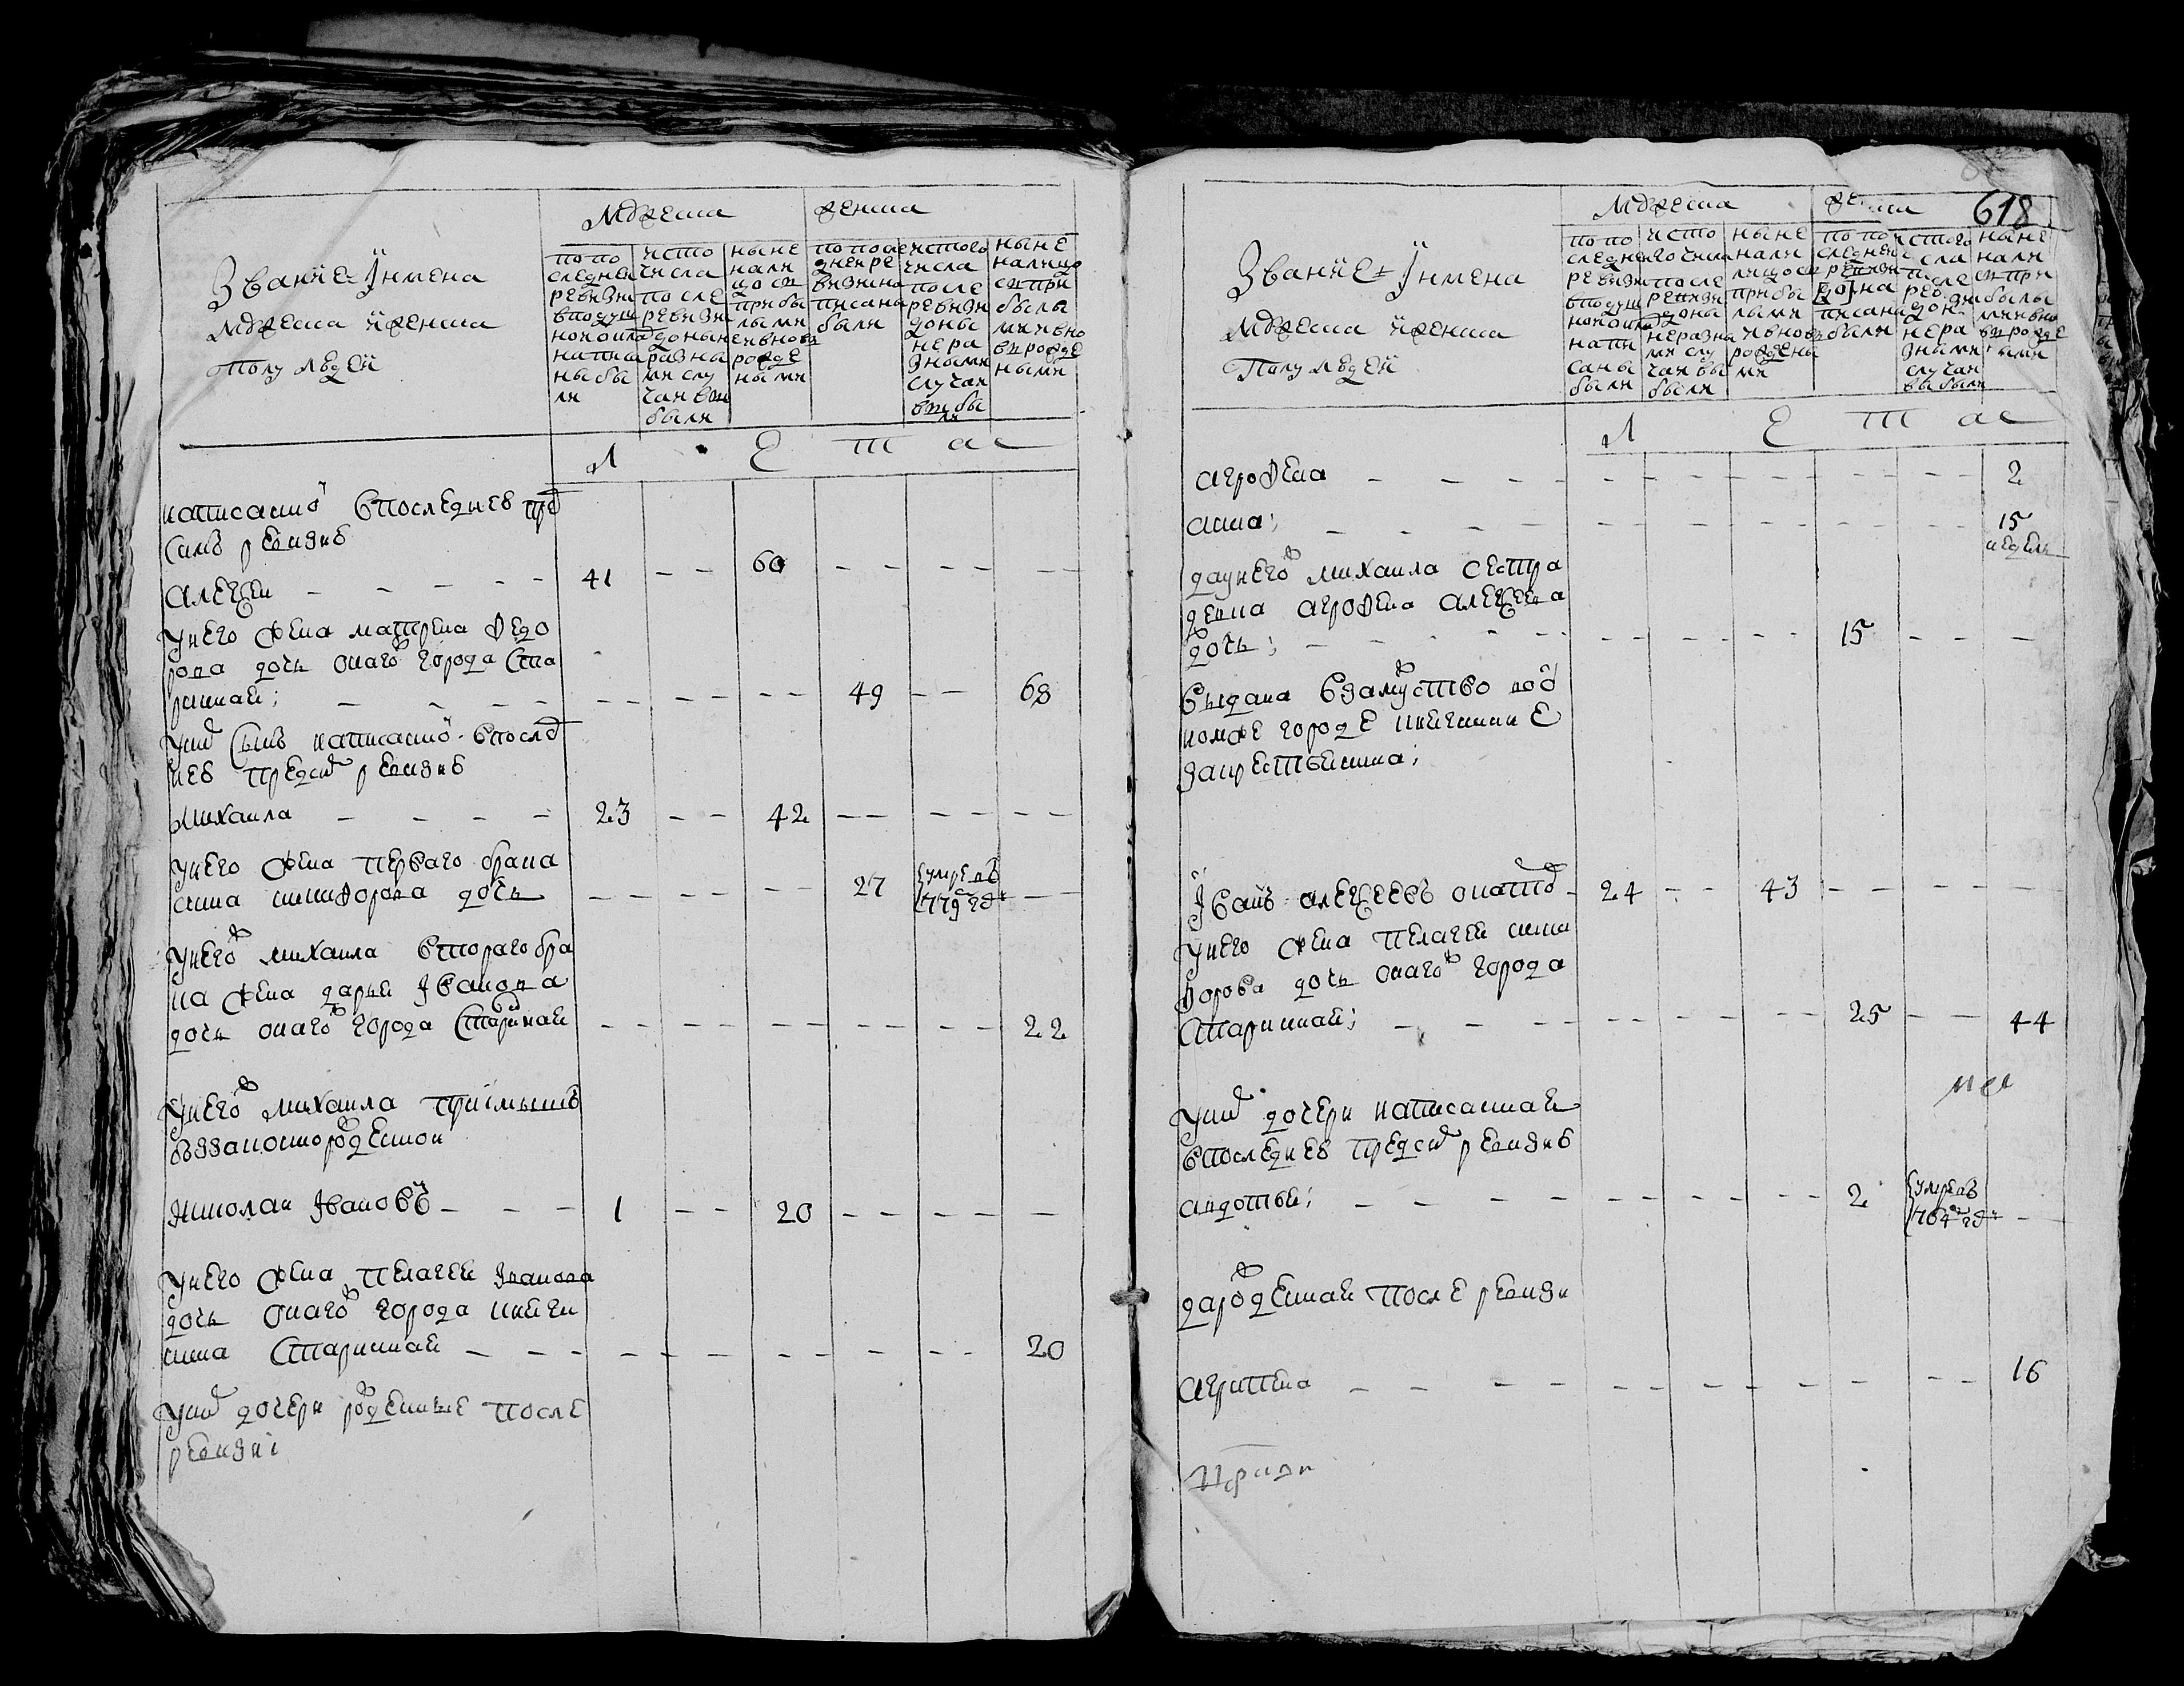 Мужеска
женска
Звание и имена
мужеска и женска
полу людей
по по
следней
ревизии
в подуш
ной окла
написа
ны бы
ли
ис то
числа
после
ревизии
до ныне
разны
ми слу
чаи вы
были
ныне
нали
цо с
прибы
лыми
и вновь
рожде
ными
по после
дней ре
визии на
писаны
были
ис того
числа
после
ревизи
до ны
не ра
зными
случаи
выбы
ли
ныне
налицо
с при
былы
ми и вно
вь рожде
ными
Л Е Т А
написанной в последнев пред
сим ревизие
Алексей - - - - 41 - - 60 - - - - - -
у него жена матрена федо
рова дочь онаго ж города ста
ринная; - - - - - - - - - - 49 - - 68
у них сын написанной в послед
нев пред сим ревизие
Михаила - - - - 23 - - 42 - - - - - -
у него жена перваго брака
анна никифорова дочь - - - - - - 27 умре в 779 году - -
у него ж михаила втораго бра
ка жена дарья Іванова
дочь онаго ж города старинная - - - - - - - - - - 22
у него ж михаила приімышъ
незаконнорожденной
Николай Івановъ - - - 1 - - 20 - - - - -
у него жена пелагея Іванова
дочь онаго ж города
старинная - - - - - - - - - - - - 20
у них дочери рожденные после
ревизиі
618
Мужеска
женска
Звание и имена
мужеска и женска
полу людей
по по
следней
ревизии
в подуш
ной окла
напи
саны
были
ис то
го числа
после
ревизи
до ны
не разны
ми слу
чаи вы
были
ныне
нали
лицо с
прибы
лыми
и вновь
рождены
ми
по по
следней
ревизи
на
писаны
были
ис того
числа
после
реви
до ны
не ра
зными
случаи
выбыли
ныне
нали
с при
былы
ми и вно
вь рожде
ными
Л Е Т А
агрофена - - - - - - - - - - - - 2
анна; - - - - - - - - - - - 15
недель
да у него ж михаила сестра
девка агрофена алексеева
дочь; - - - - - - - - - 15 - - -
выдана в замуство по
ном же городе
за крестьянина;
Іван алексеевъ - 24 - - 43 - - - - -
у него жена пелагея ники
форова дочь онаго ж города
старинная; - - - - - - - - - - 25 - - 44
у них дочери написанная
в последнев пред сим ревизие
авдотья; - - - - - - - - - - 2 умре в 764 году -
да рожденная после ревизи
агрипена - - - - - - - - - - - - 16